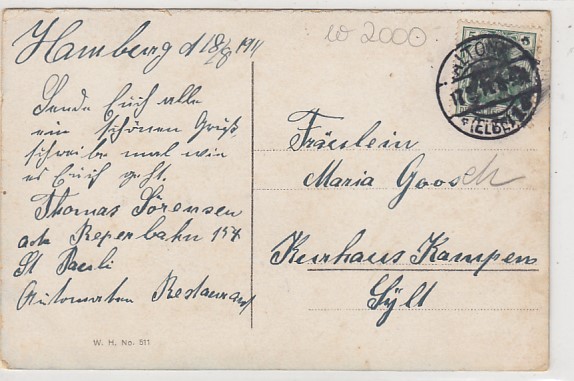 Hamburg d 18/8 1911
Sende Euch alle
ein schönen Gruß,
schreibe mal wie
es Euch geht.
Thomas Sörensen
adr Reperbahn 154
St Pauli
Automaten Restaurant
W. H. No. 511
w 2000
5 5
ALTONA
(ELBE)
Fräulein
Maria Goosch
Kurhaus Kampen
Sylt